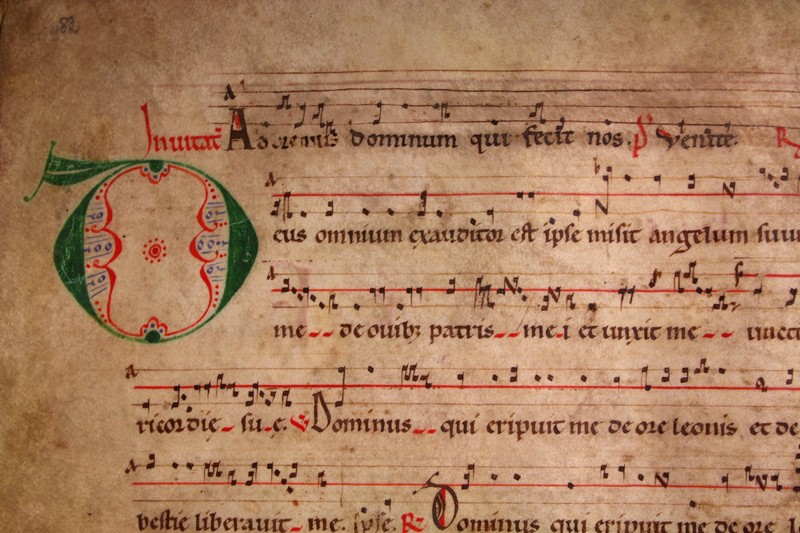 82
Inuitat Adoremus dominum qui fecit nos. ps Venite. R
Deus omnium exauditor est ipse misit angelum suum
me-- de ouibꝫ patris-- me-i et unxit me-- unccti
ricordie- su-e. V Dominus-- qui eripuit me de ore leonis et de
bestie liberauit- me. Ipse. R Dominus qui eripuit me de ore